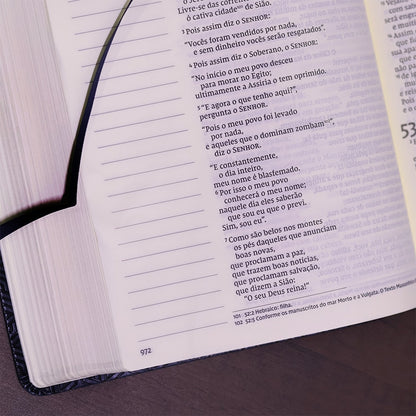 Livre-se das
ó cativa cidade de Sião.
³ Pois assim diz o SENHOR:
“Vocês foram vendidos por nada,
e sem dinheiro vocês serão resgatados”.
⁴ Pois assim diz o Soberano, o SENHOR:
“No início o meu povo desceu
para morar no Egito;
ultimamente a Assíria o tem oprimido.
⁵ “E agora o que tenho aqui?”,
pergunta o SENHOR.
“Pois o meu povo foi levado
por nada,
e aqueles que o dominam zombam¹⁰²”,
diz o SENHOR.
“E constantemente,
o dia inteiro,
meu nome é blasfemado.
⁶ Por isso o meu povo
conhecerá o meu nome;
naquele dia eles saberão
que sou eu que o previ.
Sim, sou eu”.
⁷ Como são belos nos montes
os pés daqueles que anunciam
boas novas,
que proclamam a paz,
que trazem boas notícias,
que proclamam salvação,
que dizem a Sião:
“O seu Deus reina!”
101 52:2 Hebraico: filha.
102 52:5 Conforme os manuscritos do mar Morto e a Vulgata; O Texto
972
53